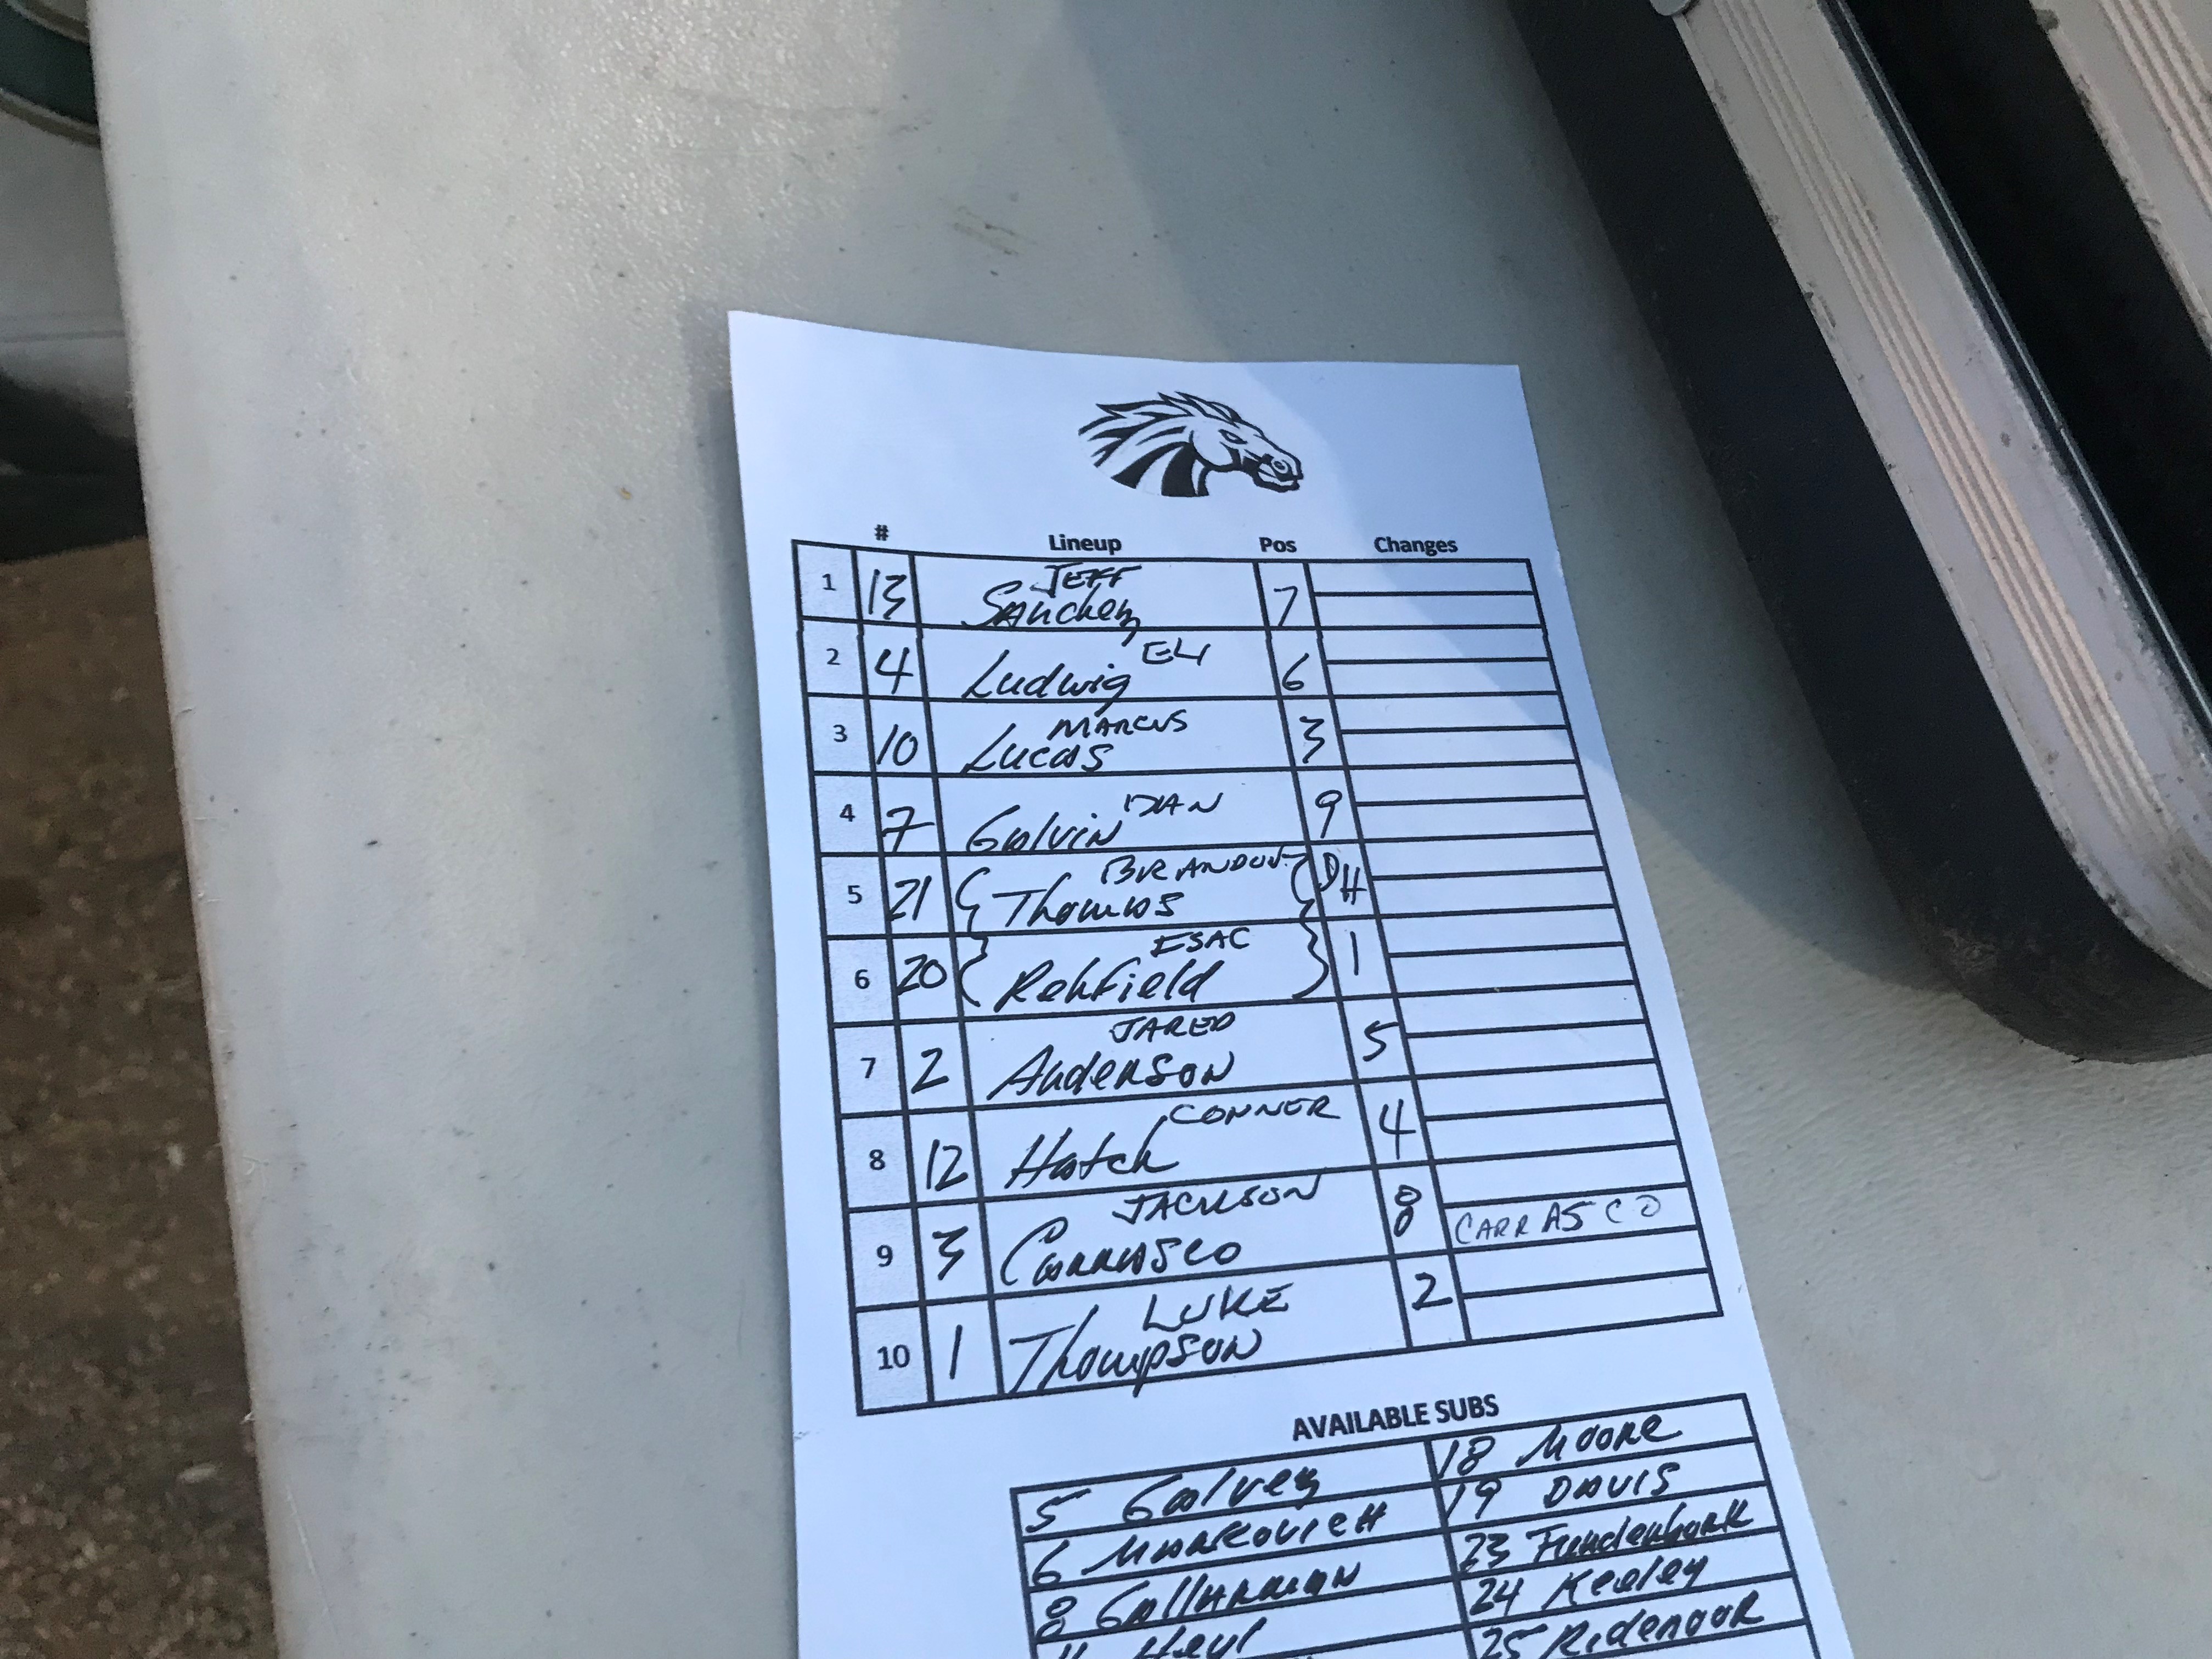 # Lineup Pos Changes
1 13 JEFF Sanchez 7
2 4 ELI Ludwig 6
3 10 MARCUS Lucas 3
4 7 DIAN Galvin 9
5 21 { BRANDON Thomas } DH
6 20 { ESAC Rehfield } 1
7 2 JARED Anderson 5
8 12 CONNER Hatch 4
9 3 JACKSON Carrasco 8 CARRASCO
10 1 LUKE Thompson 2
AVAILABLE SUBS
5 Galvez 18 Moore
6 Markovich 19 DAVIS
8 23 Fundenbark
24 Keeley
25 Ridenour